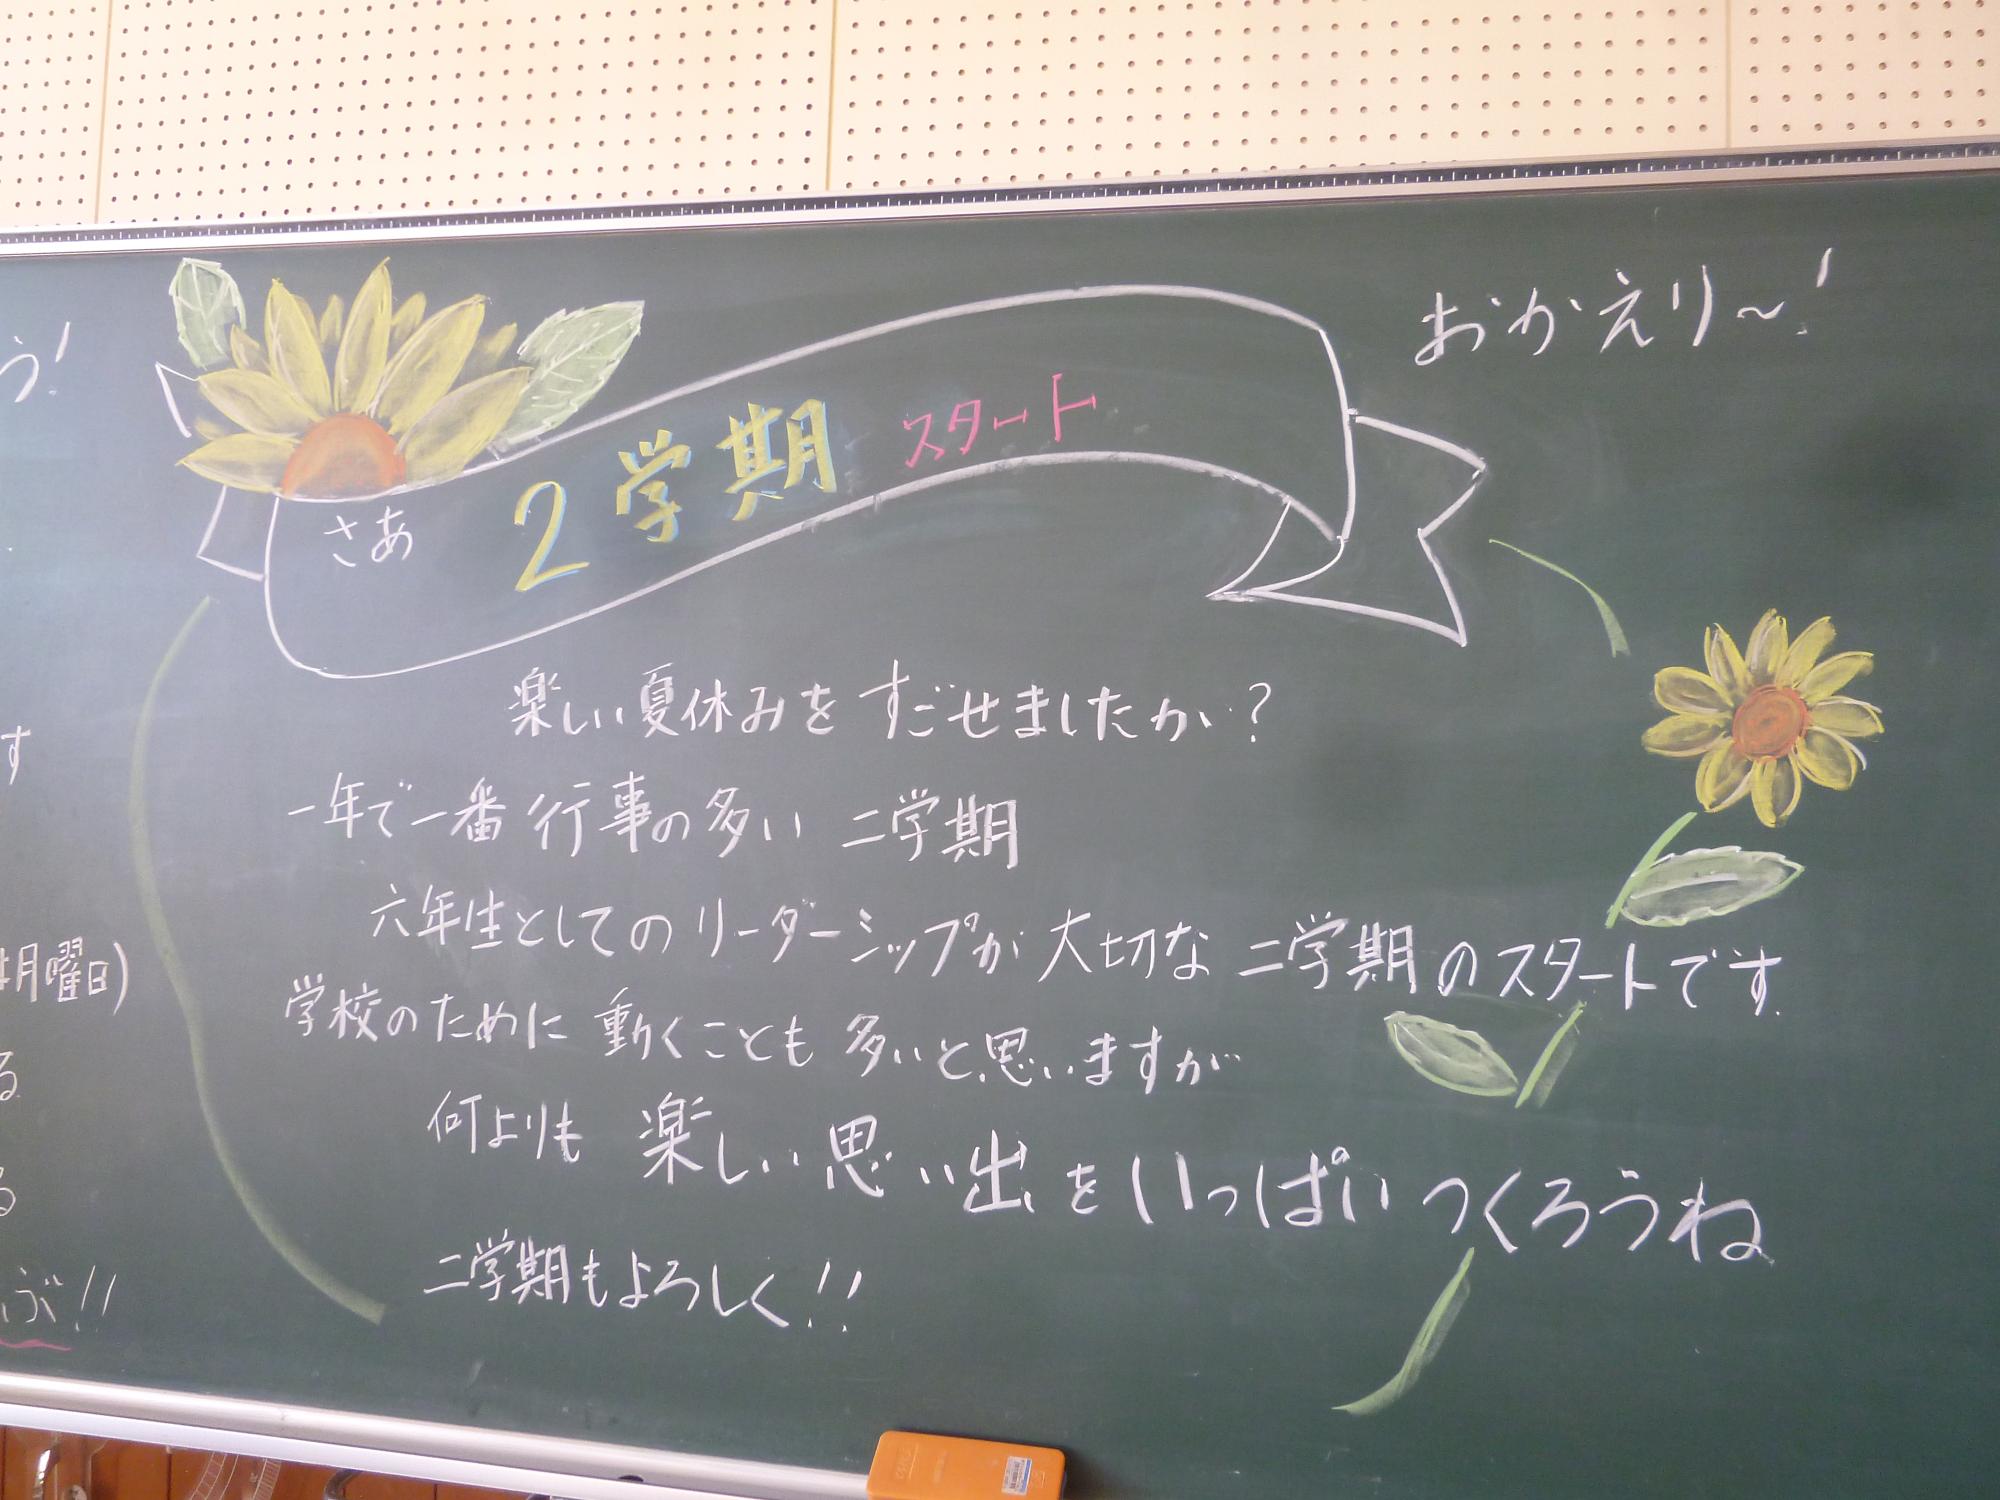 う!
おかえり～!
さあ 2学期 スタート
楽しい夏休みを すごせましたか?
一年で一番 行事の多い 二学期
六年生としての リーダーシップが 大切な 二学期のスタートです.
学校のために 動くことも 多いと思いますが
何よりも 楽しい思い出をいっぱい つくろうね
二学期もよろしく!!
す
月曜日)
る
る
ぶ!!